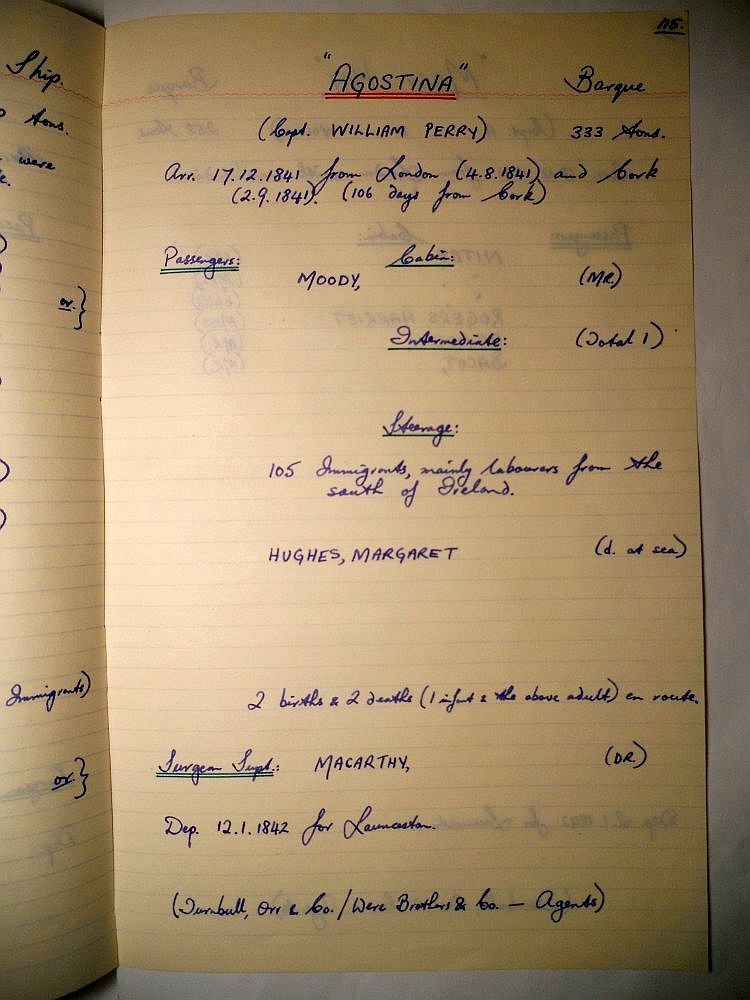 115.
Ship.
"AGOSTINA" Barque
(Capt. WILLIAM PERRY) 333 Tons.
tons.
were
Arr. 17.12.1841 from London (4.8.1841) and Cork
(2.9.1841). (106 days from Cork)
Passengers: Cabin:
MOODY, (MR.)
or }
Intermediate: (Total 1)
Steerage:
105 Immigrants, mainly labourers from the
south of Ireland.
HUGHES, MARGARET (d. at sea)
Immigrants)
2 births & 2 deaths (1 infant & the above adult) en route.
Surgeon Supt.: MACARTHY, (DR.)
or }
Dep. 12.1.1842 for Launceston.
(Turnbull, Orr & Co. / Were Brothers & Co. — Agents)